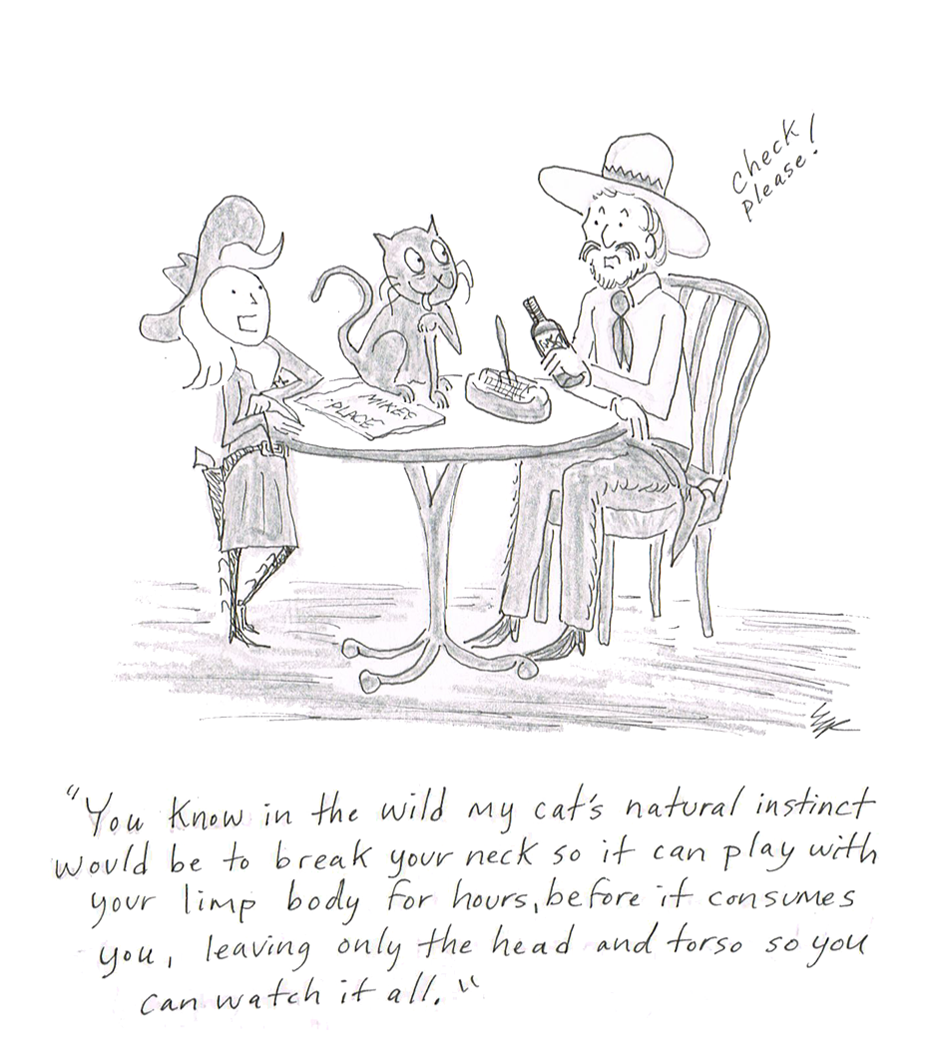 check
please!
MIKES
PLACE
"You know in the wild my cat's natural instinct
would be to break your neck so it can play with
your limp body for hours, before it consumes
you, leaving only the head and torso so you
can watch it all."